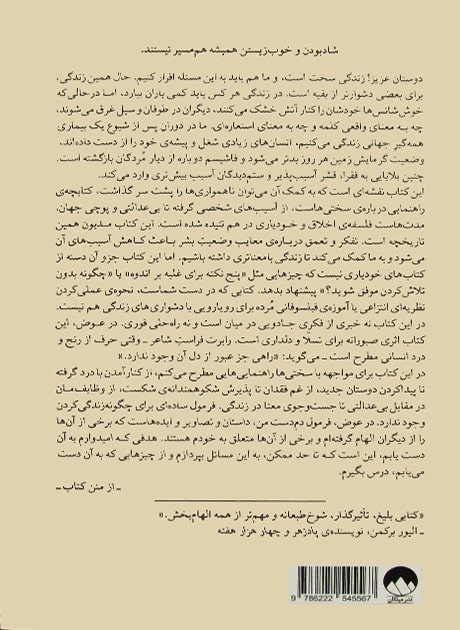 شادبودن و خوب‌زیستن همیشه هم‌مسیر نیستند.
دوستان عزیز! زندگی سخت است، و ما هم باید به این مسئله اقرار کنیم. حال همین زندگی،
برای بعضی دشوارتر از بقیه است. در زندگی هر کس باید کمی باران ببارد، اما درحالی‌که
خوش‌شانس‌ها خودشان را کنار آتش خشک می‌کنند، دیگران در طوفان و سیل غرق می‌شوند،
چه به معنای واقعی کلمه و چه به معنای استعاره‌ای. ما در دوران پس از شیوع یک بیماری
همه‌گیر جهانی زندگی می‌کنیم، انسان‌های زیادی شغل و پیشه‌ی خود را از دست داده‌اند،
وضعیت گرمایش زمین هر روز بدتر می‌شود و فاشیسم دوباره از دیار مُردگان بازگشته است.
چنین بلایایی به فقرا، قشر آسیب‌پذیر و ستم‌دیدگان آسیب بیش‌تری وارد می‌کند.
این کتاب نقشه‌ای است که به کمک آن می‌توان ناهمواری‌ها را پشت سر گذاشت، کتابچه‌ی
راهنمایی درباره‌ی سختی‌هاست، از آسیب‌های شخصی گرفته تا بی‌عدالتی و پوچی جهان.
مدت‌هاست فلسفه‌ی اخلاق و خودیاری در هم تنیده شده است. این کتاب مدیون همین
تاریخچه است. تفکر و تعمق درباره‌ی معایب وضعیت بشر باعث کاهش آسیب‌های آن
می‌شود و به ما کمک می‌کند تا زندگی بامعناتری داشته باشیم. اما این کتاب جزو آن دسته از
کتاب‌های خودیاری نیست که چیزهایی مثل «پنج نکته برای غلبه بر اندوه» یا «چگونه بدون
تلاش‌کردن موفق شوید؟» پیشنهاد بدهد. کتابی که در دست شماست، نحوه‌ی عملی‌کردن
نظریه‌ای انتزاعی یا آموزه‌ی فیلسوفانی مُرده برای رویارویی با دشواری‌های زندگی هم نیست.
در این کتاب نه خبری از فکری جادویی در میان است و نه راه‌حلی فوری. در عوض، این
کتاب اثری صبورانه برای تسلا و دلداری است. رابرت فراستِ شاعر ــ وقتی حرف از رنج و
درد انسانی مطرح است ــ می‌گوید: «راهی جز عبور از دل آن وجود ندارد.»
در این کتاب برای مواجهه با سختی‌ها راهنمایی‌هایی مطرح می‌کنم، از کنارآمدن با درد گرفته
تا پیداکردن دوستان جدید، از غم فقدان تا پذیرش شکوهمندانه‌ی شکست، از وظایف‌مان
در مقابل بی‌عدالتی تا جست‌وجوی معنا در زندگی. فرمول ساده‌ای برای چگونه‌زندگی‌کردن
وجود ندارد. در عوض، فرمول دم‌دست من، داستان و تصاویر و ایده‌هاست که برخی از آن‌ها
را از دیگران الهام گرفته‌ام و برخی از آن‌ها متعلق به خودم هستند. هدفی که امیدوارم به آن
دست یابم، این است که تا حد ممکن، به این مسائل بپردازم و از چیزهایی که به آن دست
می‌یابم، درس بگیرم.
ــ از متن کتاب ــ
«کتابی بلیغ، تأثیرگذار، شوخ‌طبعانه و مهم‌تر از همه الهام‌بخش.»
ــ الیور برکمن، نویسنده‌ی پادزهر و چهار هزار هفته
9 786222 545567
نشر میلکان